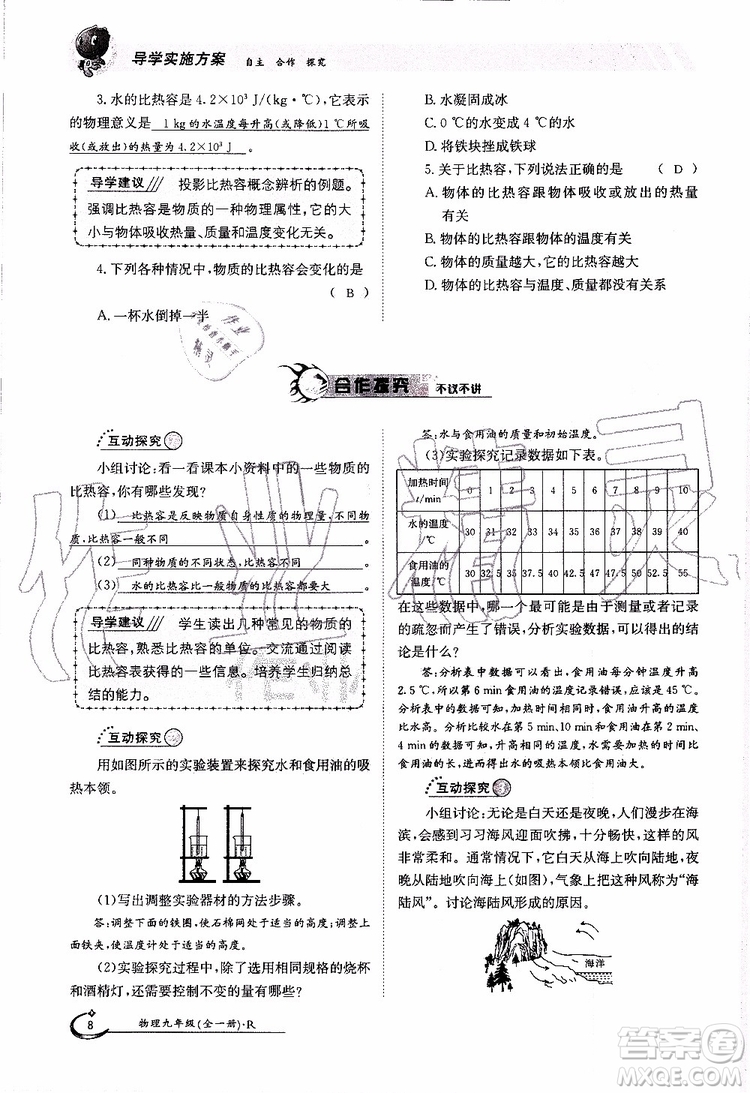 导学实施方案 自主 合作 探究
3. 水的比热容是 4.2×10³ J/(kg·℃),它表示
的物理意义是 1 kg的水温度每升高(或降低)1 ℃所吸
收(或放出)的热量为4.2×10³ J 。
导学建议 投影比热容概念辨析的例题。
强调比热容是物质的一种物理属性,它的大
小与物体吸收热量、质量和温度变化无关。
4. 下列各种情况中,物质的比热容会变化的是
( B )
A. 一杯水倒掉一半
B. 水凝固成冰
C. 0 ℃的水变成 4 ℃的水
D. 将铁块挫成铁球
5. 关于比热容,下列说法正确的是 ( D )
A. 物体的比热容跟物体吸收或放出的热量
有关
B. 物体的比热容跟物体的温度有关
C. 物体的质量越大,它的比热容越大
D. 物体的比热容与温度、质量都没有关系
合作探究 不议不讲
互动探究
小组讨论:看一看课本小资料中的一些物质的
比热容,你有哪些发现?
(1) 比热容是反映物质自身性质的物理量,不同物
质,比热容一般不同 。
(2) 同种物质的不同状态,比热容不同 。
(3) 水的比热容比一般的物质都要大 。
导学建议 学生读出几种常见的物质的
比热容,熟悉比热容的单位。交流通过阅读
比热容表获得的一些信息。培养学生归纳总
结的能力。
互动探究
用如图所示的实验装置来探究水和食用油的吸
热本领。
(1)写出调整实验器材的方法步骤。
答:调整下面的铁圈,使石棉网处于适当的高度;调整上
面铁夹,使温度计处于适当的高度。
(2)实验探究过程中,除了选用相同规格的烧杯
和酒精灯,还需要控制不变的量有哪些?
答:水与食用油的质量和初始温度。
(3)实验探究记录数据如下表。
加热时间 t/min 0 1 2 3 4 5 6 7 8 9 10
水的温度 /℃ 30 31 32 33 34 35 36 37 38 39 40
食用油的温度/℃ 30 32.5 35 37.5 40 42.5 47 47.5 50 52.5 55
在这些数据中,哪一个最可能是由于测量或者记录
的疏忽而产生了错误,分析实验数据,得出的结
论是什么?
答:分析表中数据可以看出,食用油每分钟温度升高
2.5 ℃,所以第 6 min 食用油的温度记录错误,应该是 45 ℃。
分析表中数据可以看出,加热相同的时间,食用油升高的温度
比水高。分析比较水在 5 min、10 min 和食用油在 2 min、
4 min 的数据可知,升高相同的温度,水需要加热的时间比
食用油更长,进而得出水的吸热本领比食用油大。
互动探究 3
小组讨论:无论是白天还是夜晚,人们漫步在海
滨,会感到习习海风迎面吹拂,十分畅快,这里的风
非常柔和。通常情况下,它白天从海上吹向陆地,夜
晚从陆地吹向海上,气象上把这种风称为“海
陆风”。讨论海陆风形成的原因。
海洋
8 物理九年级(全一册)·R
答案圈
MXQE.COM